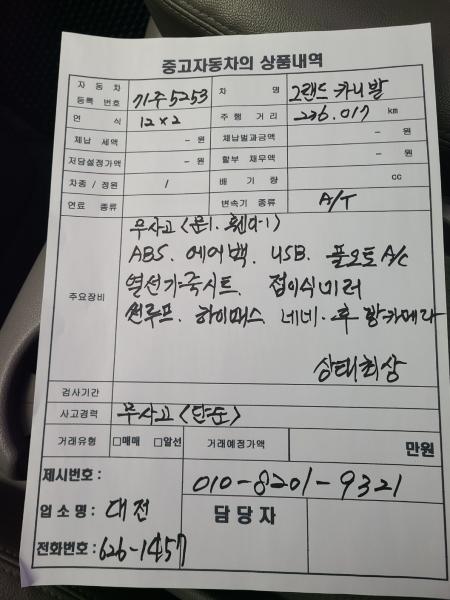 중고자동차의 상품내역
자동차 등록 번호 71주5253 차명 그랜드 카니발
연식 12x2 주행 거리 236.017 km
체납 세액 - 원 체납벌과금액 - 원
저당설정가액 - 원 할부 채무액 - 원
차종 / 정원 / 배기량 cc
연료 종류 변속기 종류 A/T
주요장비
무사고 <문1. 휀다-1>
ABS. 에어백. USB. 풀오토 A/C
열선가죽시트. 접이식미러
썬루프. 하이패스 네비. 후방카메라
상태최상
검사기간
사고경력 무사고 <단순>
거래유형 □매매 □알선 거래예정가액 만원
제시번호 : 010-8201-9321
업소명 : 대전 담당자
전화번호 : 626-1457